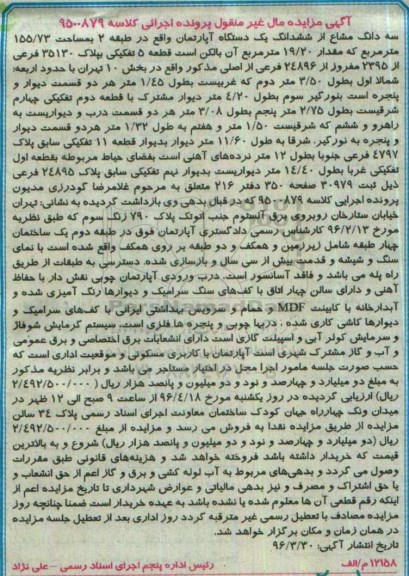 آگهی مزایده مال غیر منقول پرونده اجرائی کلاسه ۹۵۰۰۸۷۹
سه دانگ مشاع از ششدانگ یک دستگاه آپارتمان واقع در طبقه ۲ بمساحت ۱۵۵/۷۳
مترمربع که مقدار ۱۹/۲۰ مترمربع آن بالکن است قطعه ۵ تفکیکی بپلاک ۳۵۱۳۰ فرعی
از ۲۳۹۵ مفروز از ۲۴۸۹۶ فرعی از اصلی مذکور واقع در بخش ۱۰ تهران با حدود اربعه:
شمالا اول بطول ۳/۵۰ متر دوم که غربیست بطول ۱/۴۵ متر هر دو قسمت دیوار و
پنجره است بنورگیر سوم بطول ۴/۲۰ متر دیوار مشترک با قطعه دوم تفکیکی چهارم
شرقیست بطول ۲/۷۵ متر پنجم بطول ۳/۰۸ متر هر دو قسمت درب و دیواریست به
راهرو و ششم که شرقیست ۱/۵۰ متر و هفتم به طول ۱/۳۲ متر هردو قسمت دیوار
و پنجره به نورگیر. شرقا به طول ۱۱/۶۰ متر دیوار بدیوار قطعه ۱۱ تفکیکی سابق پلاک
۴۷۹۷ فرعی جنوبا بطول ۱۲ متر نرده‌های آهنی است بفضای حیاط مربوطه بقطعه اول
تفکیکی غربا بطول ۱۴/۴۰ متر دیواریست بدیوار نیم تفکیکی سابق پلاک ۲۴۸۹۵ فرعی
ذیل ثبت ۳۰۹۷۹ صفحه ۳۵۰ دفتر ۲۱۶ متعلق به مرحوم غلامرضا گودرزی مدیون
پرونده اجرایی کلاسه ۹۵۰۰۸۷۹ که در قبال بدهی وی بازداشت گردیده به نشانی: تهران
خیابان ستارخان روبروی برق آلستوم جنب اتوتک پلاک ۷۹۰ زنگ سوم که طبق نظریه
مورخ ۹۶/۲/۱۳ کارشناس رسمی دادگستری آپارتمان فوق در طبقه دوم یک ساختمان
چهار طبقه شامل زیرزمین و همکف و دو طبقه بر روی همکف واقع شده است با نمای
سنگ و شیشه و قدمت بیش از سی سال و بازسازی شده. دسترسی به طبقات از طریق
راه پله می باشد و فاقد آسانسور است. درب ورودی آپارتمان چوبی نقش دار با حفاظ
آهنی و دارای سالن چهار اتاق با کف‌های سنگ سرامیک و دیوارها رنگ آمیزی شده و
آبدارخانه با کابینت MDF و حمام و سرویس بهداشتی ایرانی با کف‌های سرامیک و
دیوارها کاشی کاری شده . دربها چوبی و پنجره ها فلزی است. سیستم گرمایش شوفاژ
و سرمایش کولر آبی و اسپیلت گازی است دارای انشعابات برق اختصاصی و برق عمومی
و آب و گاز مشترک شهری است آپارتمان با کاربری مسکونی و موقعیت اداری است که
حسب صورت جلسه مامور اجرا محل در اختیار مستاجر می باشد و برابر نظریه مذکور
به مبلغ دو میلیارد و چهارصد و نود و دو میلیون و پانصد هزار ریال (۲/۴۹۲/۵۰۰/۰۰۰
ریال) ارزیابی گردیده در روز یکشنبه مورخ ۹۶/۴/۱۸ از ساعت ۹ صبح الی ۱۲ ظهر در
میدان ونک چهارراه جهان کودک ساختمان معاونت اجرای اسناد رسمی پلاک ۳۴ سالن
مزایده از طریق مزایده نقدا به فروش می رسد و مزایده از مبلغ ۲/۴۹۲/۵۰۰/۰۰۰
ریال (دو میلیارد و چهارصد و نود و دو میلیون و پانصد هزار ریال) شروع و به بالاترین
قیمت که خریدار داشته باشد فروخته خواهد شد و هزینه‌های قانونی طبق مقررات
وصول می گردد و بدهی‌های مربوط به آب لوله کشی و برق و گاز اعم از حق انشعاب و
یا حق اشتراک و مصرف و نیز بدهی مالیاتی و عوارض شهرداری تا تاریخ مزایده اعم از
اینکه رقم قطعی آن ها معلوم شده یا نشده باشد به عهده خریدار است ضمنا چنانچه روز
مزایده مصادف با تعطیل رسمی غیر مترقبه گردد روز اداری بعد از تعطیل جلسه مزایده
در همان زمان و مکان برگزار خواهد شد.
تاریخ انتشار آگهی: ۹۶/۳/۳۰
۱۲۱۵۸/م الف رئیس اداره پنجم اجرای اسناد رسمی – علی نژاد